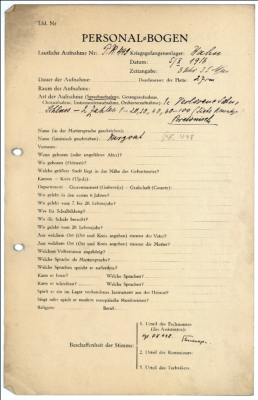 Lfd. Nr
PERSONAL-BOGEN
Lautliche Aufnahme Nr.: PK 448 Kriegsgefangenenlager:
Datum:
Zeitangabe:
Dauer der Aufnahme: Durchmesser der Platte:
Raum der Aufnahme:
Art der Aufnahme (Sprechaufnahme, Gesangsaufnahme,
Choraufnahme, Instrumentenaufnahme, Orchesteraufnahme):
Name (in der Muttersprache geschrieben):
Name (lateinisch geschrieben):
Vorname:
Wann geboren (oder ungefähres Alter)?
Wo geboren (Heimat)?
Welche größere Stadt liegt in der Nähe des Geburtsortes?
Kanton — Kreis (Ujedz):
Departement — Gouvernement (Gubernija) — Grafschaft (County):
Wo gelebt in den ersten 6 Jahren?
Wo gelebt vom 7. bis 20. Lebensjahr?
Was für Schulbildung?
Wo die Schule besucht?
Wo gelebt vom 20. Lebensjahr?
Aus welchem Ort (Ort und Kreis angeben) stammt der Vater?
Aus welchem Ort (Ort und Kreis angeben) stammt die Mutter?
Welchem Volksstamm angehörig?
Welche Sprache als Muttersprache?
Welche Sprachen spricht er außerdem?
Kann er lesen? Welche Sprachen?
Kann er schreiben? Welche Sprachen?
Spielt er ein im Lager vorhandenes Instrument aus der Heimat?
Singt oder spielt er moderne europäische Musikweisen?
Religion: Beruf:
Beschaffenheit der Stimme:
1. Urteil des Fachmannes
(des Assistenten):
2. Urteil des Kommissars:
3. Urteil des Technikers: